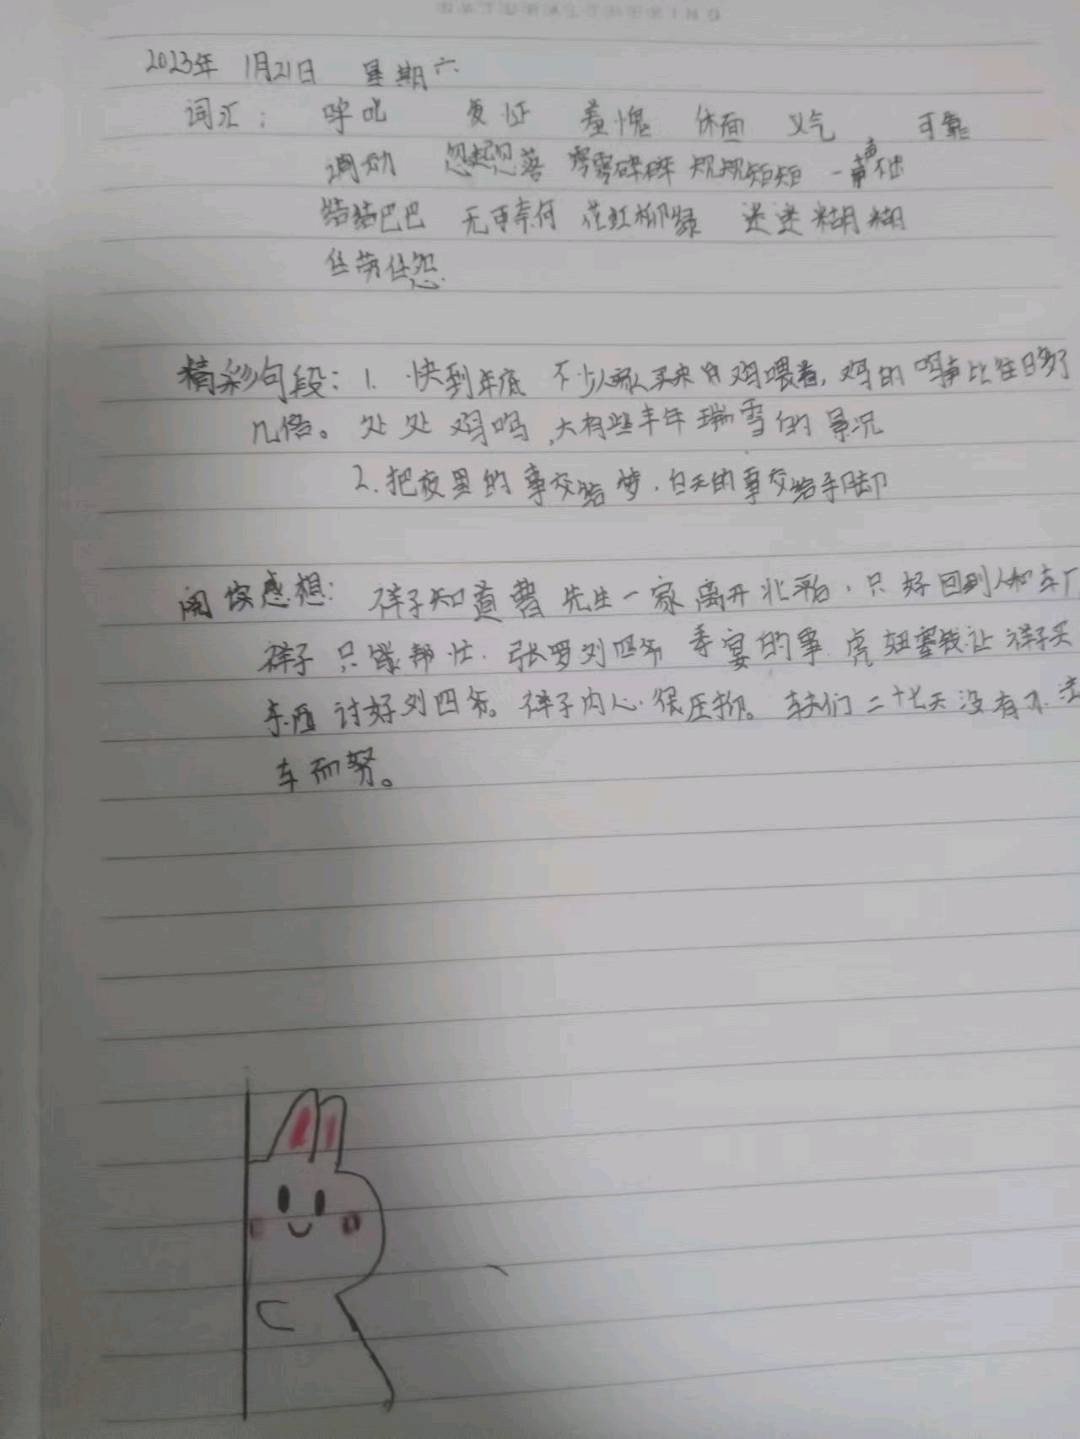 2023年 1月21日 星期六
词汇： 呼吡 复位 羞愧 体面 义气 可靠
调动 忽起忽落 零零碎碎 规规矩矩 一声不出
结结巴巴 无可奈何 花红柳绿 迷迷糊糊
任劳任怨
精彩句段：1. 快到年底 不少人家买来 鸡喂着，鸡的鸣声比往日多了
几倍。处处鸡鸣，大有些丰年瑞雪的景况
2.把夜里的事交给梦，白天的事交给手脚
阅读感想：祥子知道曹先生一家离开北平，只好回到人和车厂
祥子只能帮忙 张罗刘四爷 寿宴的事 虎妞塞钱让祥子买
东西讨好刘四爷。祥子内心很压抑。车夫们二十七天没有
车而努。